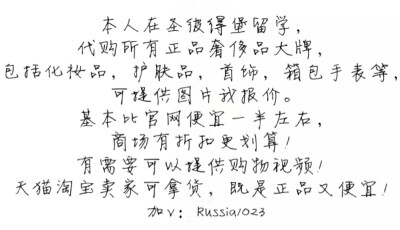 本人在圣彼得堡留学，
代购所有正品奢侈品大牌，
包括化妆品，护肤品，首饰，箱包手表等，
可提供图片我报价。
基本比官网便宜一半左右，
商场有折扣更划算！
有需要可以提供购物视频！
天猫淘宝卖家可拿货，既是正品又便宜！
加v：Russia1023